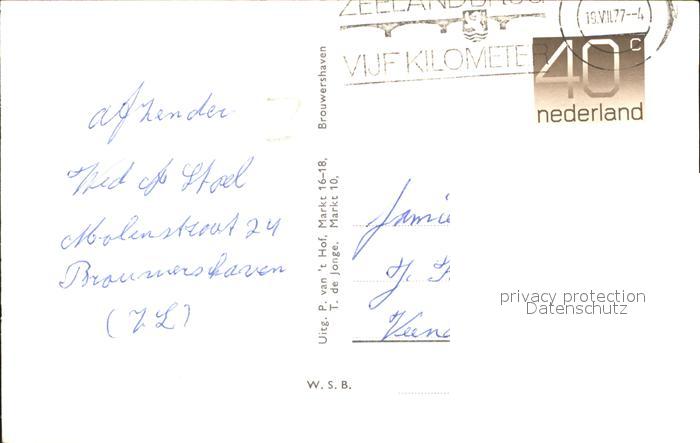 ZEELANDBRUG
VIJF KILOMETER
19.VII.77--4
40 c
nederland
afzender
Wed A Stoel
Molenstraat 24
Brouwershaven
(ZL)
Brouwershaven
Uitg. P. van 't Hof, Markt 16-18,
T. de Jonge, Markt 10,
W. S. B.
Famie
J.
Veend
privacy protection
Datenschutz